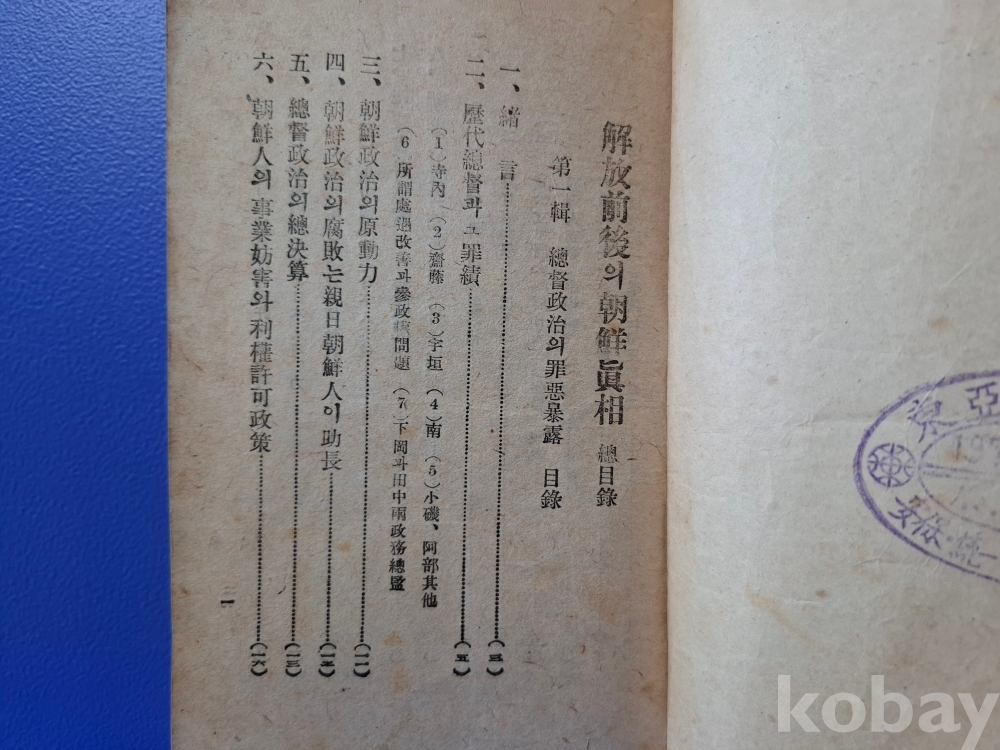 解放前後의 朝鮮眞相 總目錄
第一輯 總督政治의 罪惡暴露 目錄
一、緖言……(三)
二、歷代總督과 그 罪績……(五)
(1)寺內 (2)齋藤 (3)宇垣 (4)南 (5)小磯、阿部其他
(6)所謂處遇改善과 參政權問題 (7)下岡과 田中兩政務總監
三、朝鮮政治의 原動力……(一一)
四、朝鮮政治의 腐敗는 親日朝鮮人이 助長……(一二)
五、總督政治의 總決算……(一三)
六、朝鮮人의 事業妨害와 利權許可政策……(一六)
一
東亞
安保·統一
kobay